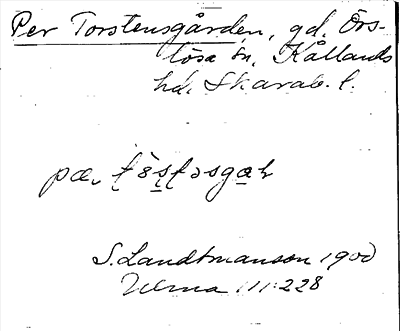 Per Torstensgården, gd. Örs-
lösa sn, Kållands
hd. Skarab. l.
pæ,
S. Landtmanson 1900
111:228